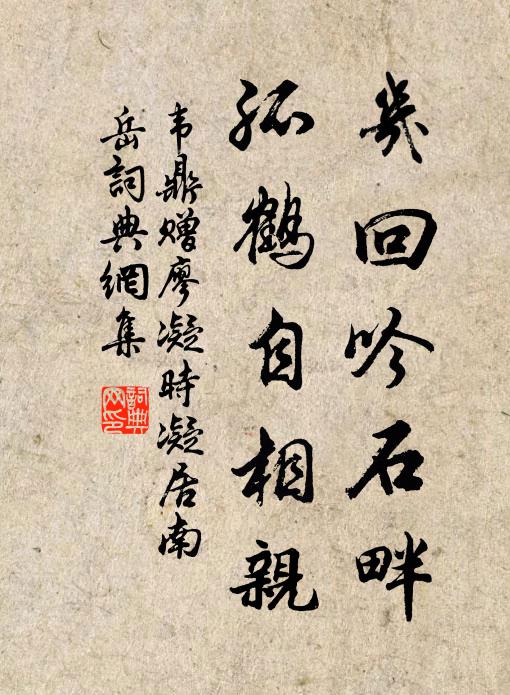 幾回吟石畔
孤鶴自相親
韦鼎赠廖凝時凝居南
岳詞典網集
詞典
网印